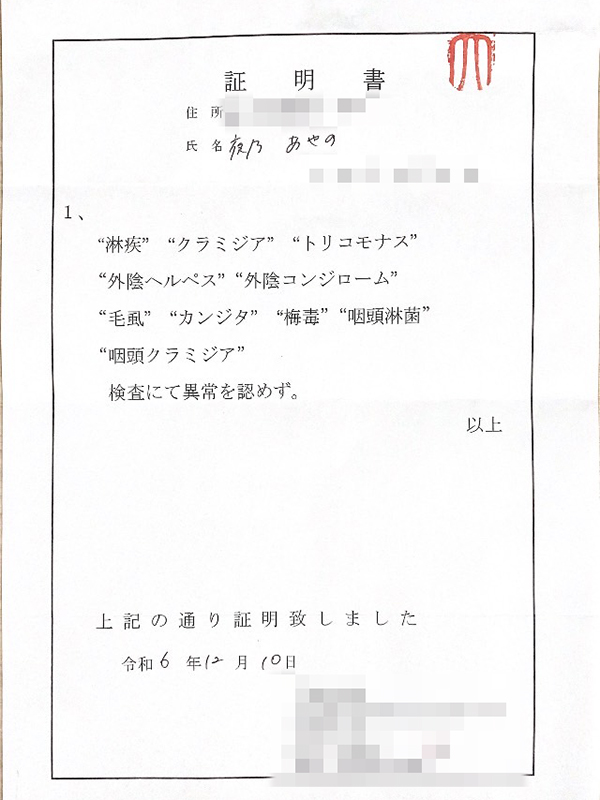 証明書
住所
氏名 夜乃 あやの
1、
“淋疾” “クラミジア” “トリコモナス”
“外陰ヘルペス” “外陰コンジローム”
“毛虱” “カンジタ” “梅毒” “咽頭淋菌”
“咽頭クラミジア”
検査にて異常を認めず。
以上
上記の通り証明致しました
令和6年12月10日